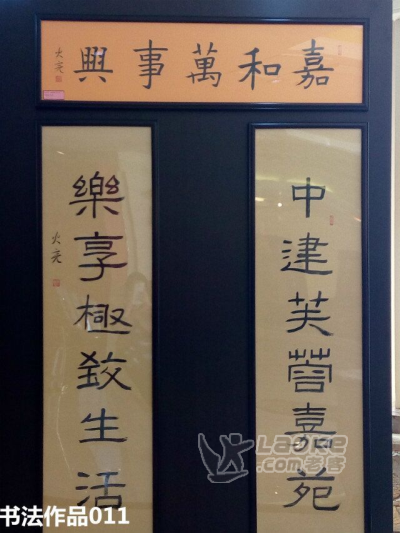 嘉和萬事興
中建芙蓉嘉苑
樂享極致生活
Laoke
.com老客
书法作品011